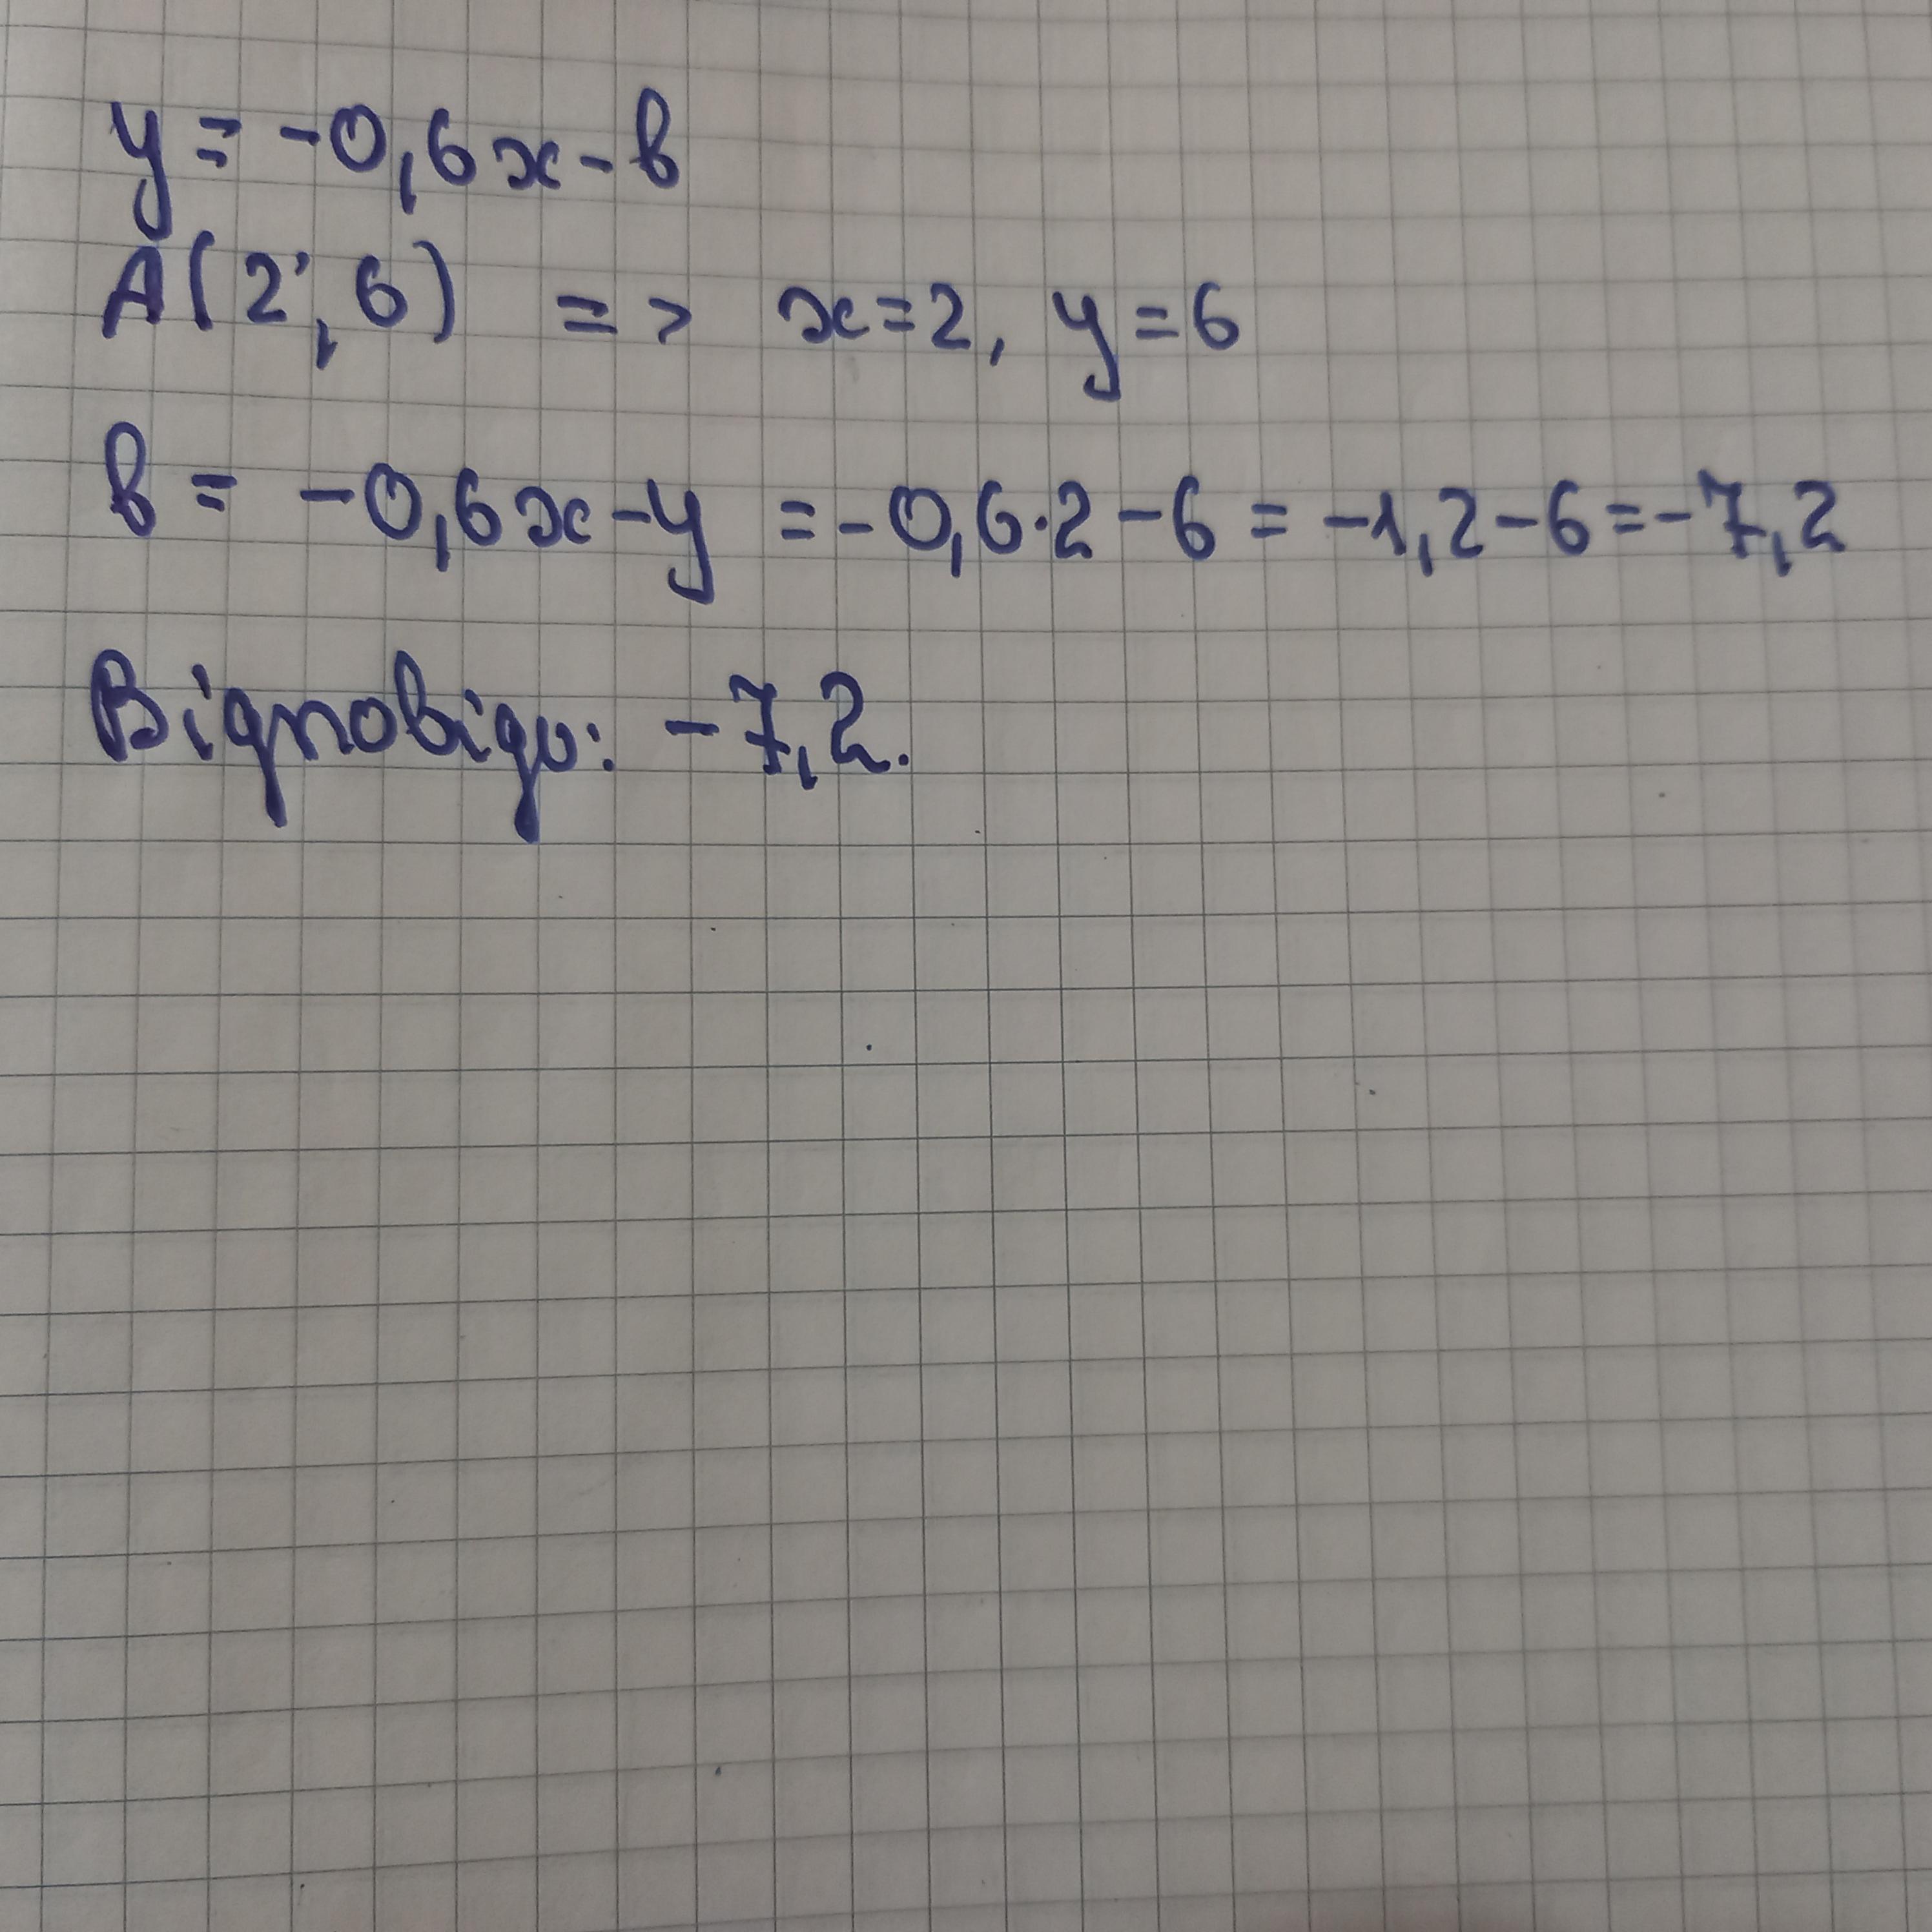 y = -0,6x - b
A(2; 6) => x=2, y=6
b = -0,6x - y = -0,6·2 - 6 = -1,2 - 6 = -7,2
Відповідь: -7,2.